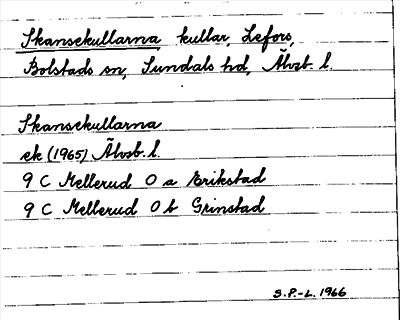 Skansekullarna kullar, Lefors,
Bolstads sn, Sundals hd, Älvsb. l.
Skansekullarna
ek (1965) Älvsb. l.
9 C Mellerud 0 a Erikstad
9 C Mellerud 0 b Grinstad
S.P.-L. 1966